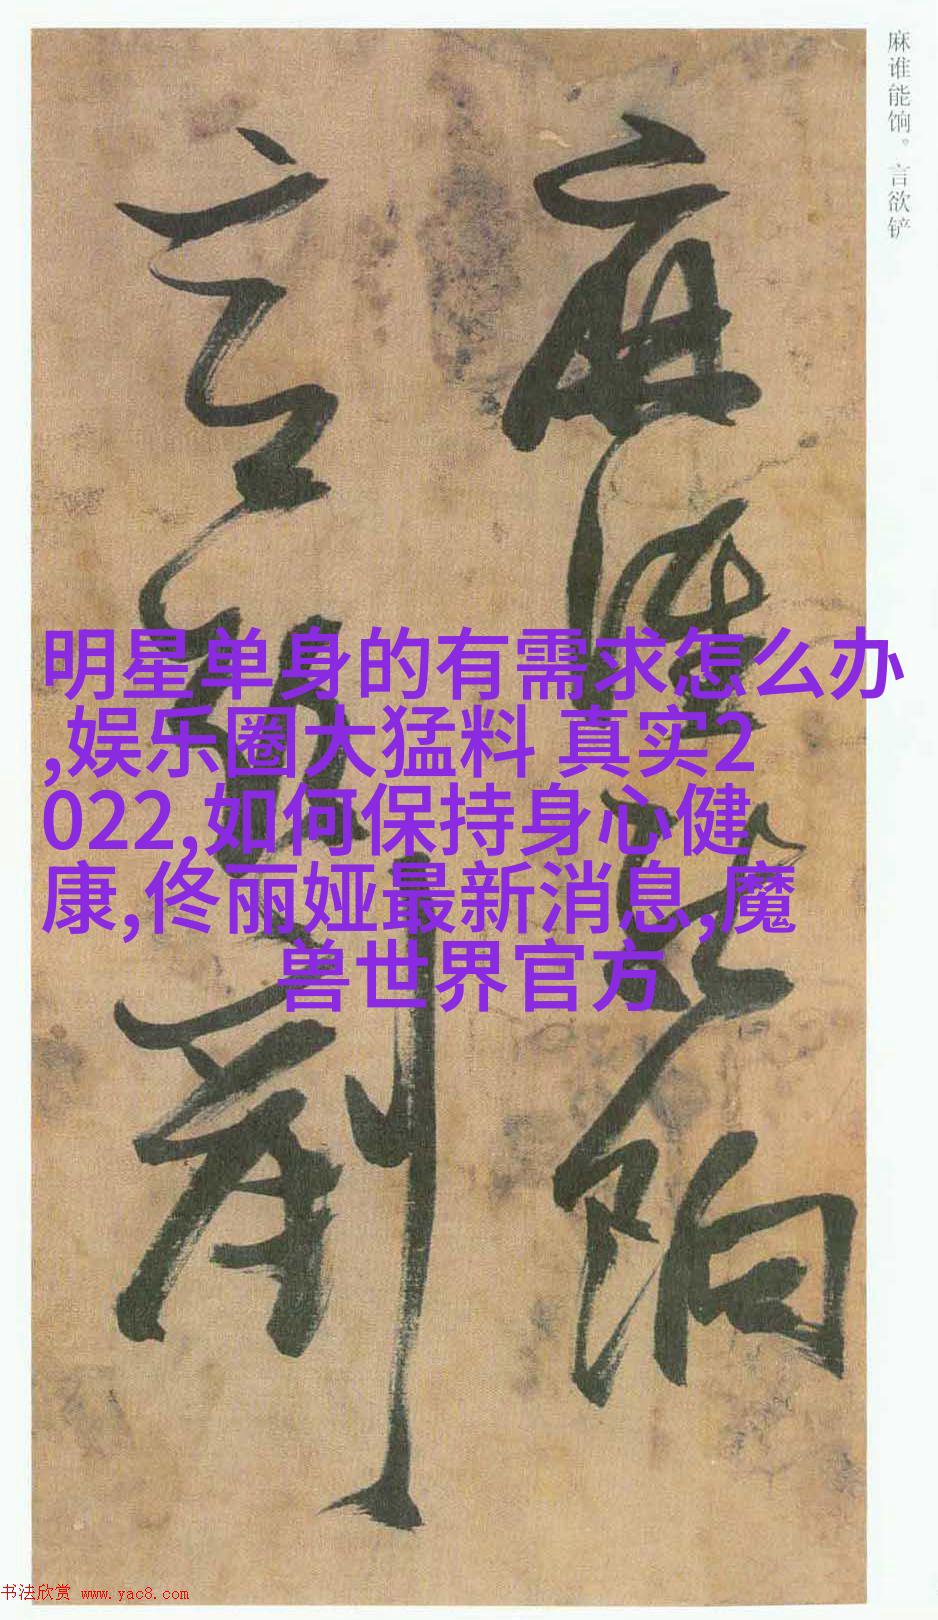 麻谁能饷。言欲铲
麻誰能餉
言欲剷
明星单身的有需求怎么办
,娱乐圈大猛料 真实2
022,如何保持身心健
康,佟丽娅最新消息,魔
兽世界官方
书法欣赏 www.yac8.com